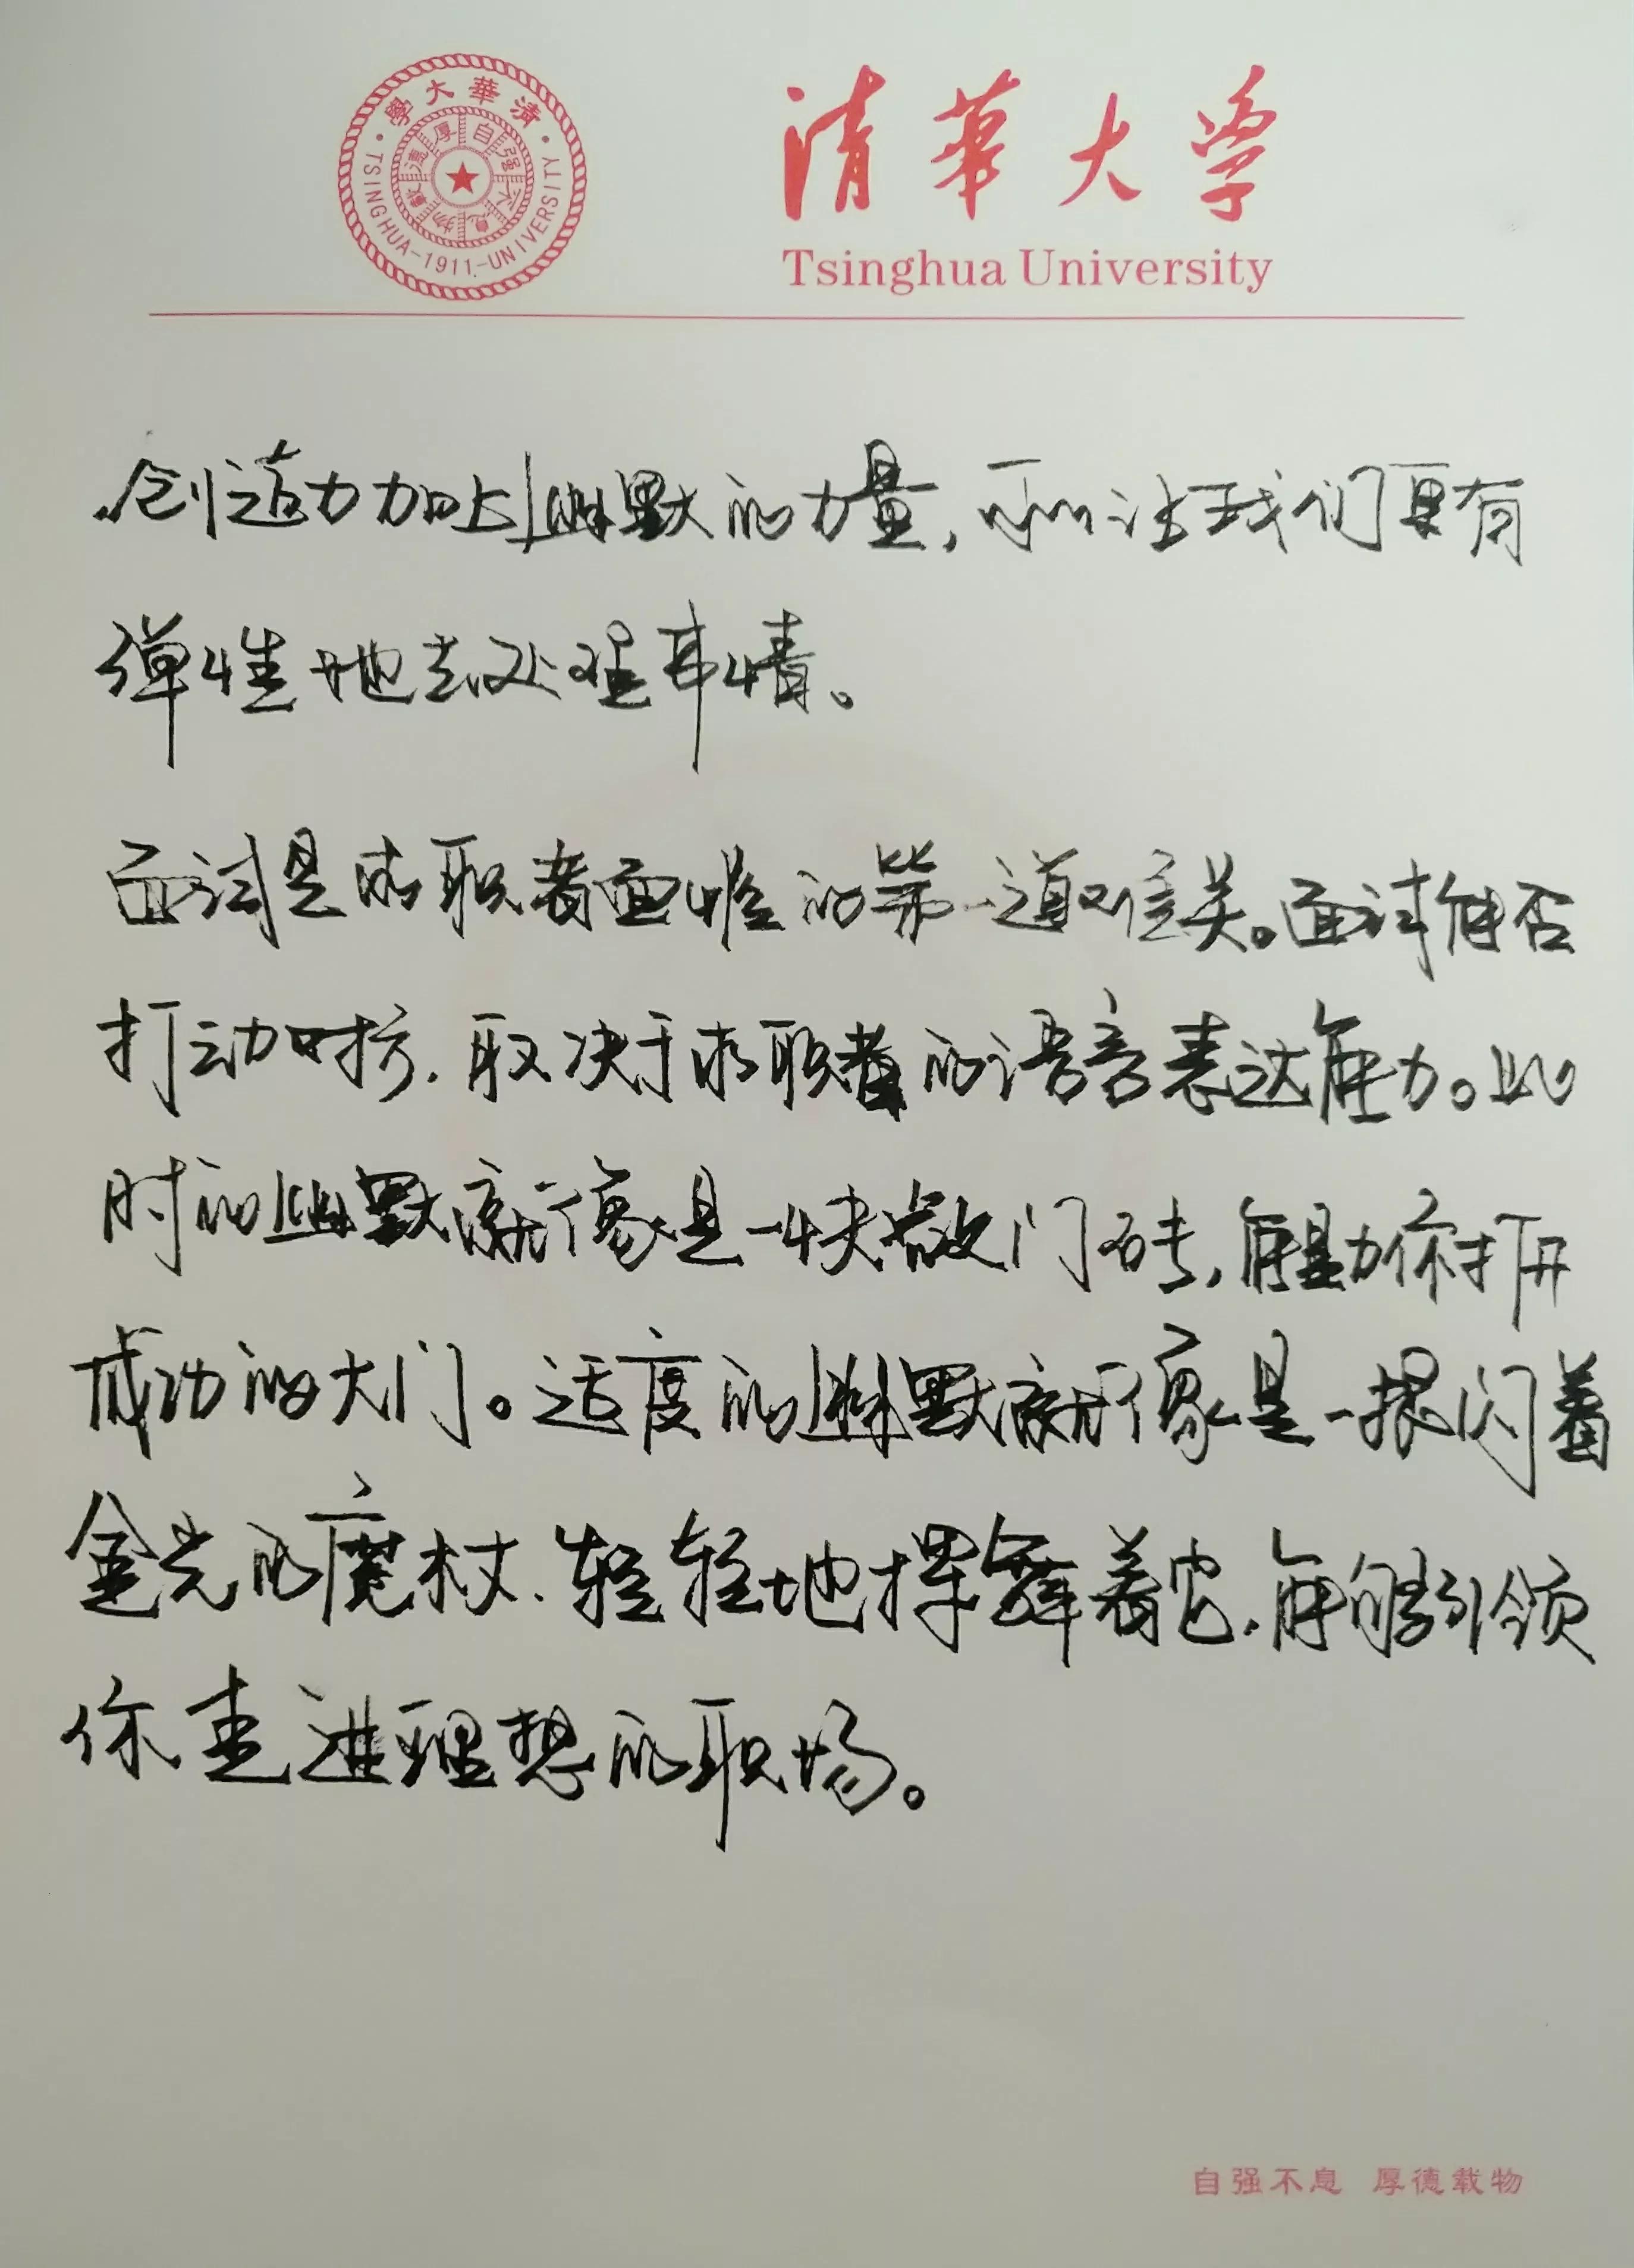 清華大學
自强不息
厚德載物
TSINGHUA-1911.-UNIVERSITY
清華大学
Tsinghua University
创造力加上幽默的力量,可以让我们更有
弹性地去处理事情。
面试是求职者面临的第一道难关。面试能否
打动对方,取决于求职者的语言表达能力。此
时的幽默就像是一块敲门砖,能助你打开
成功的大门。适度的幽默就像是一根闪着
金光的魔杖,轻轻地挥舞着它,能够引领
你走进理想的职场。
自强不息 厚德载物